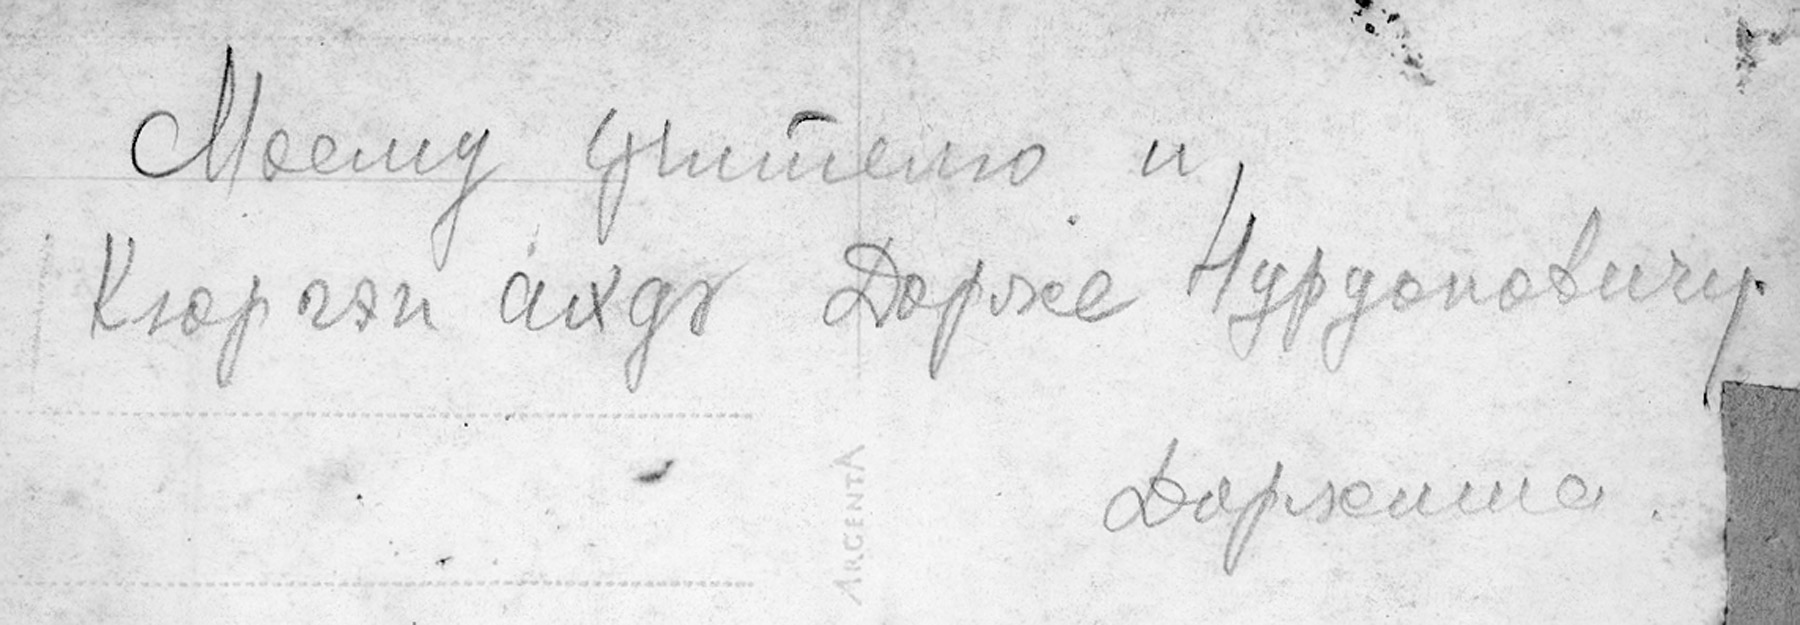 Моему учителю и
Кюргэн ахдъ Дорже Нурдоновичу.
Доржиша.
ARGENTA